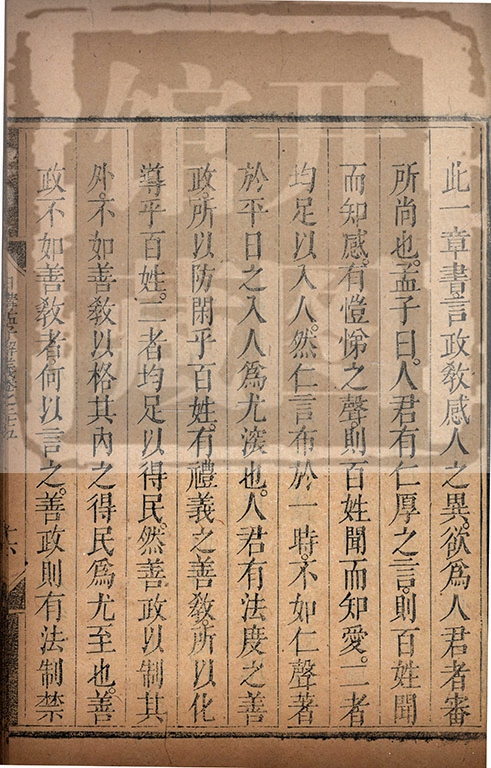 此一章書言政教感人之異欲為人君者審
所尚也孟子曰人君有仁厚之言則百姓聞
而知感有愷悌之聲則百姓聞而知愛二者
均足以入人然仁言布於一時不如仁聲著
於平日之入人為尤深也人君有法度之善
政所以防閑乎百姓有禮義之善教所以化
導乎百姓二者均足以得民然善政以制其
外不如善教以格其內之得民為尤至也善
政不如善教者何以言之善政則有法制禁